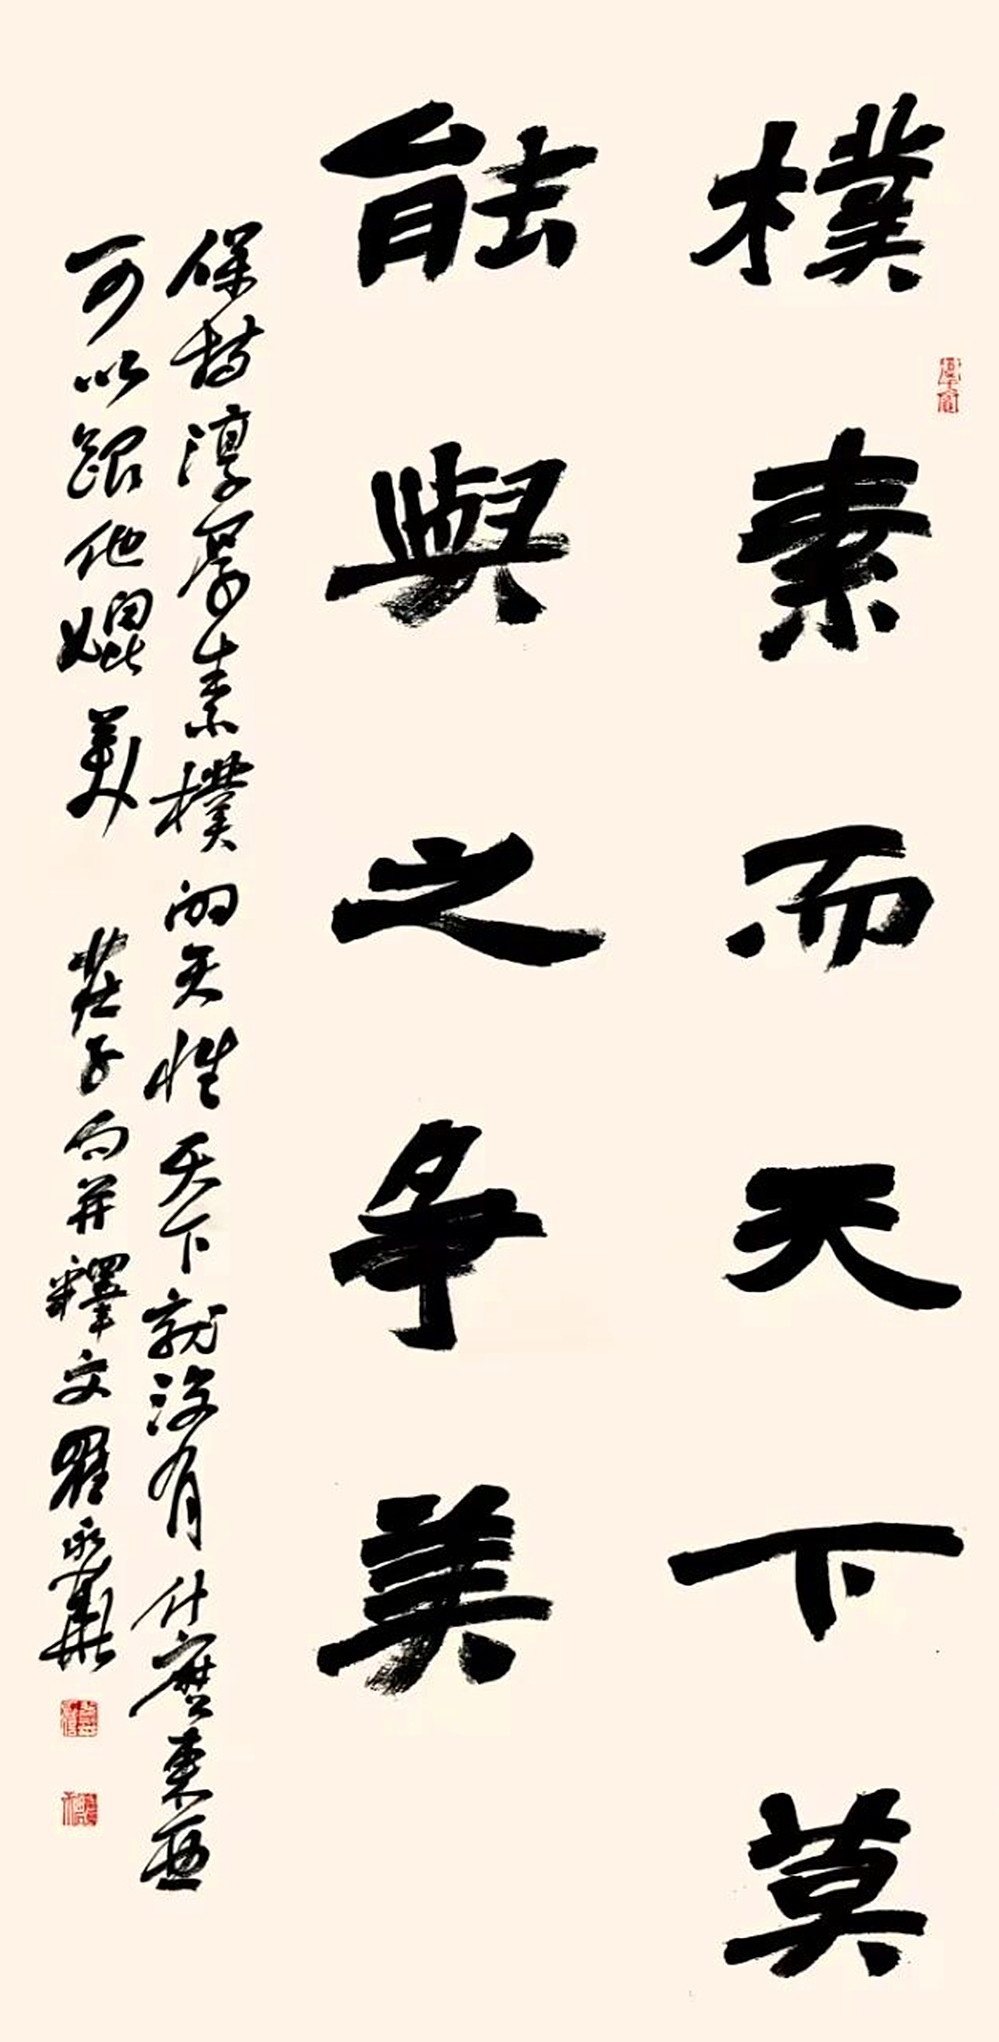 樸素而天下莫
能與之爭美
保持淳厚素樸的天性天下就沒有什麼東西
可以跟他媲美 莊子句并釋文瞿永華